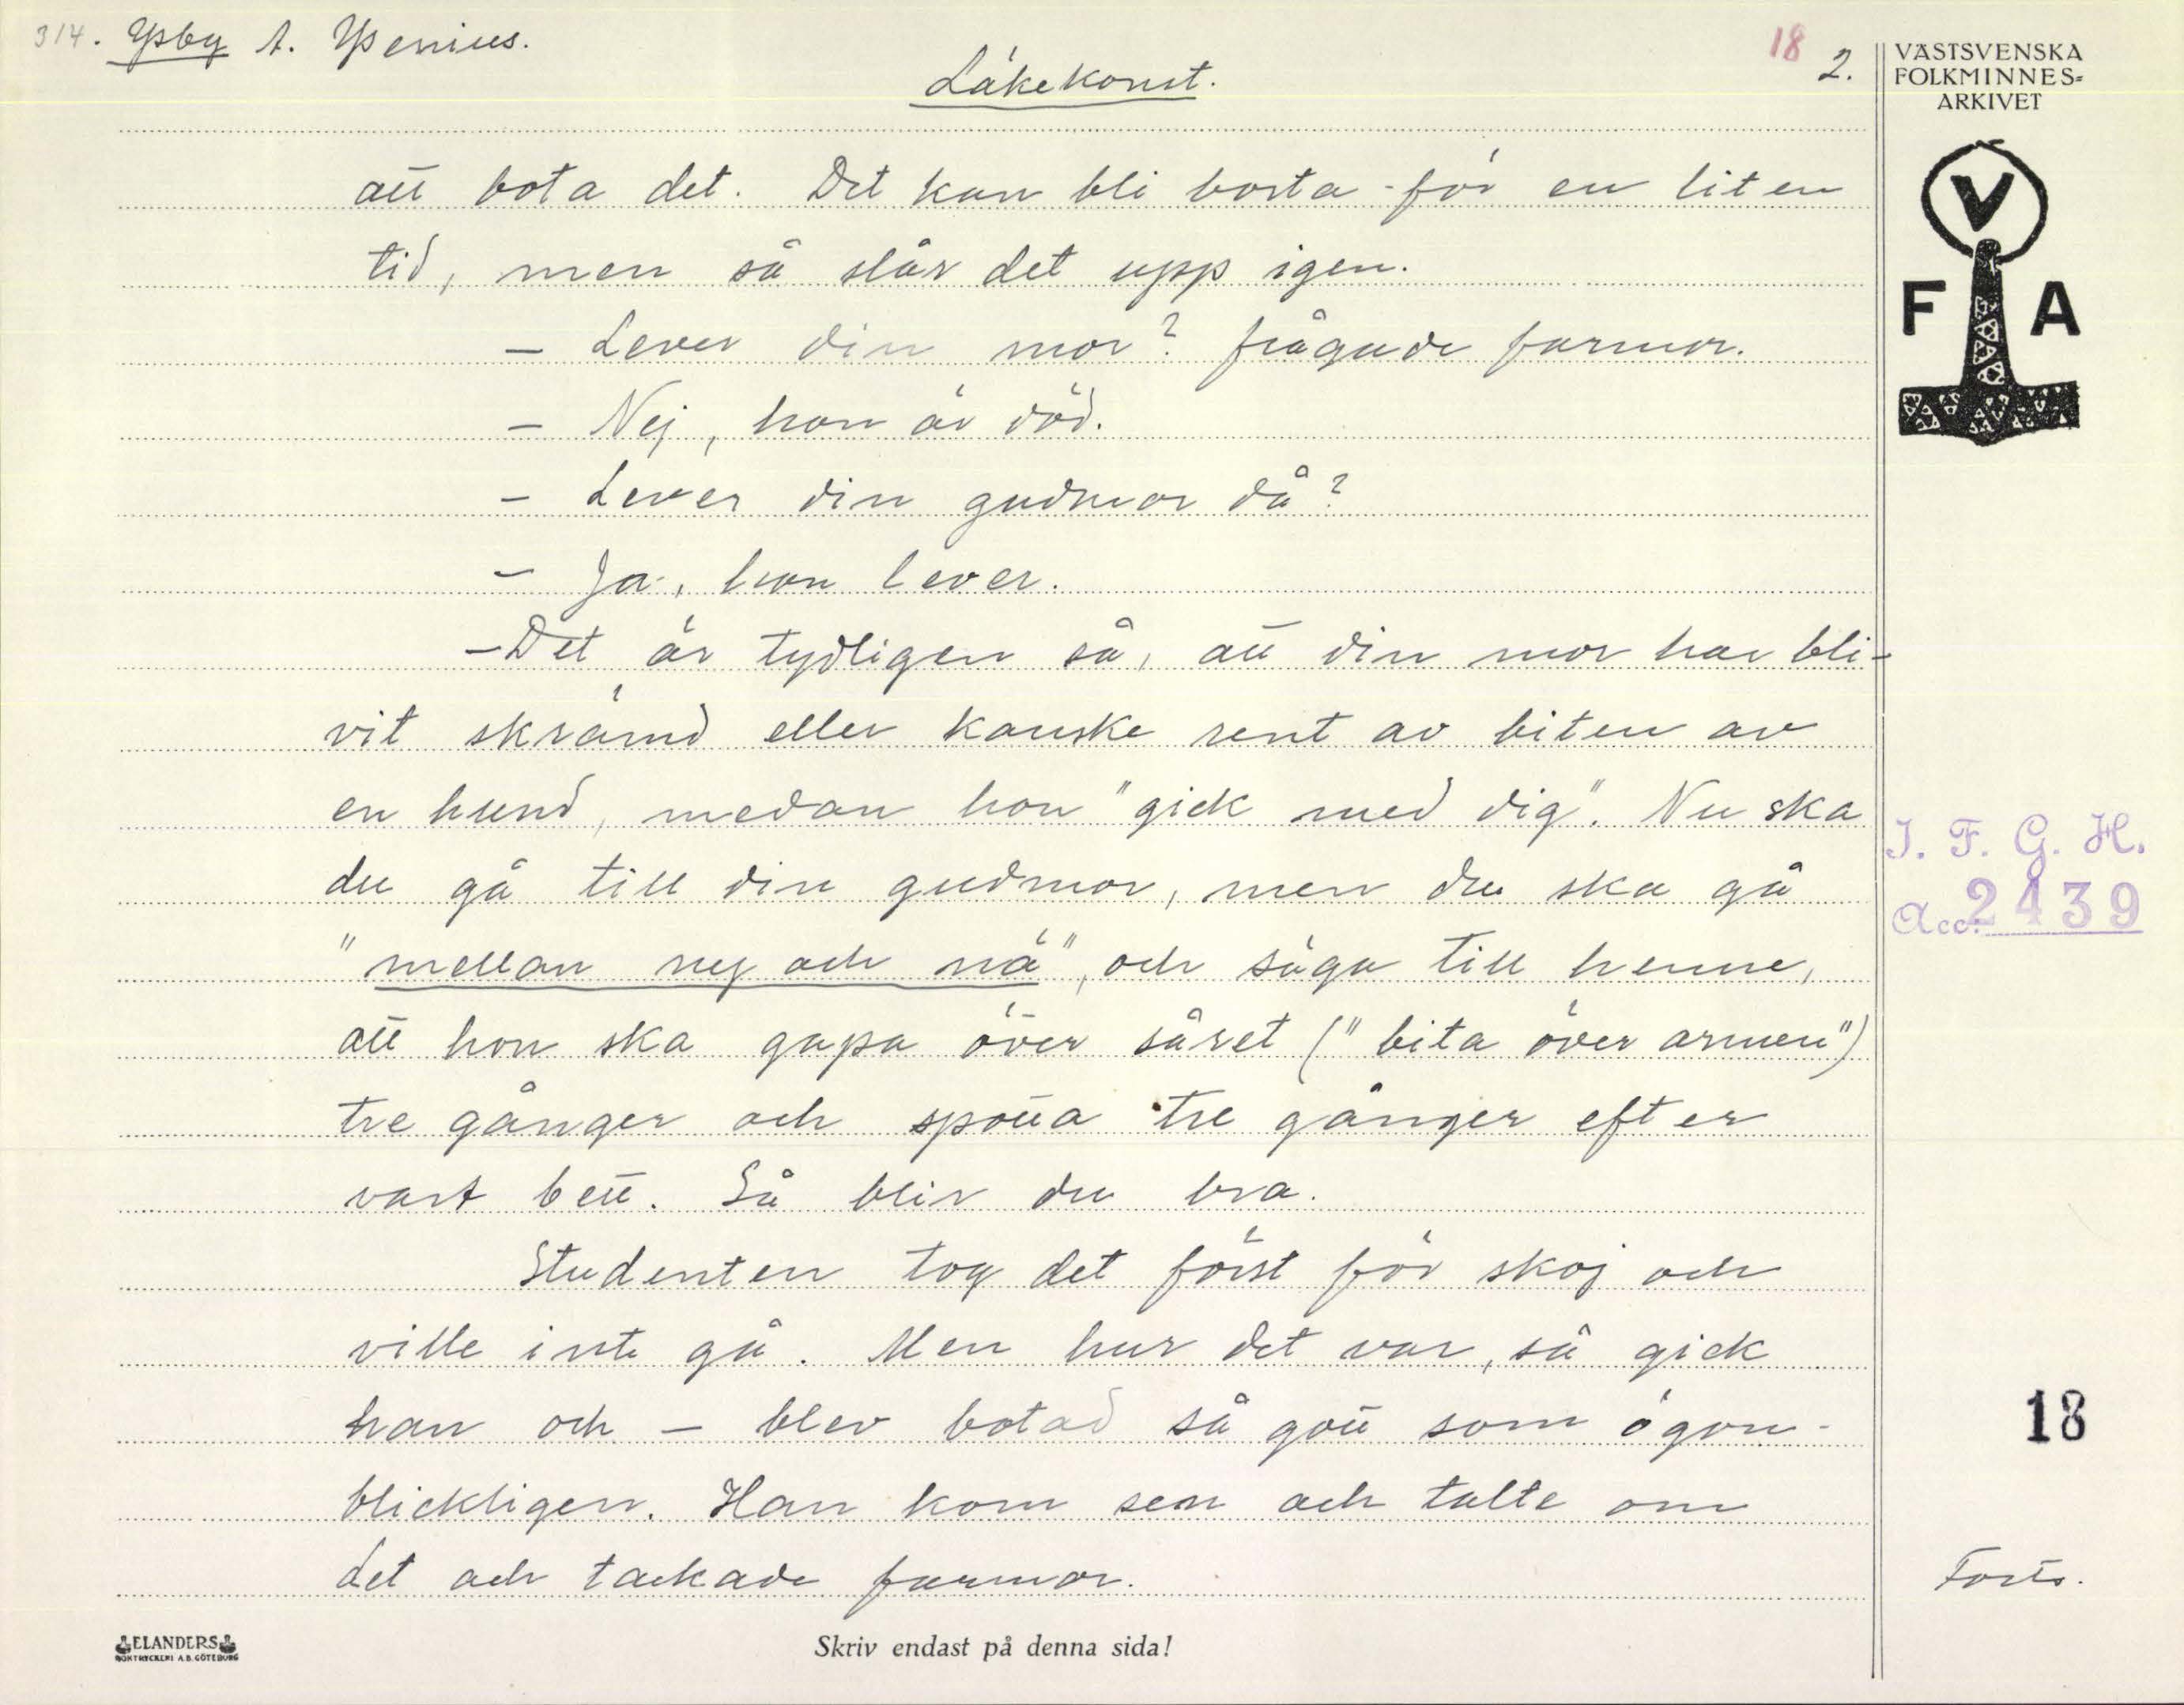 314. Ysby A. Ysenius.
18 2.
Läkekonst.
VÄSTSVENSKA
FOLKMINNES-
ARKIVET
V
F A
att bota det. Det kan bli borta för en liten
tid, men så slår det upp igen.
- Lever din mor? frågade farmor.
- Nej, hon är död.
- Lever din gudmor då?
- Ja, hon lever.
- Det är tydligen så, att din mor har bli-
vit skrämd eller kanske rent av biten av
en hund, medan hon "gick med dig". Nu ska
du gå till din gudmor, men du ska gå
"mellan ny och nä", och säga till henne,
att hon ska gapa över såret ("bita över armen")
tre gånger och spotta tre gånger efter
vart bett. Så blir du bra.
Studenten tog det först för skoj och
ville inte gå. Men hur det var, så gick
han och - blev botad så gott som ögon-
blickligen. Han kom sen och talte om
det och tackade farmor.
I. F. G. H.
Acc. 2439
18
Forts.
ELANDERS
BOKTRYCKERI A.B. GÖTEBORG
Skriv endast på denna sida!